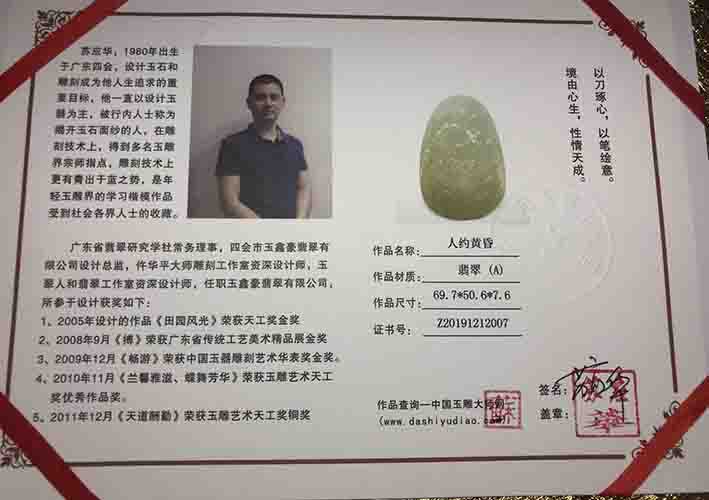 苏应华，1980年出生
于广东四会，设计玉石和
雕刻成为他人生追求的重
要目标，他一直以设计玉
器为主，被行内人士称为
揭开玉石面纱的人，在雕
刻技术上，得到多名玉雕
界宗师指点，雕刻技术上
更有青出于蓝之势，是年
轻玉雕界的学习楷模作品
受到社会各界人士的收藏。
广东省翡翠研究学社常务理事，四会市玉鑫豪翡翠有
限公司设计总监，仵华平大师雕刻工作室资深设计师，玉
翠人和翡翠工作室资深设计师，任职玉鑫豪翡翠有限公司；
所参于设计获奖如下：
1、2005年设计的作品《田园风光》荣获天工奖金奖
2、2008年9月《搏》荣获广东省传统工艺美术精品展金奖
3、2009年12月《畅游》荣获中国玉器雕刻艺术华表奖金奖。
4、2010年11月《兰馨雅滋、蝶舞芳华》荣获玉雕艺术天工
奖优秀作品奖。
5、2011年12月《天道酬勤》荣获玉雕艺术天工奖铜奖
以刀琢心，以笔绘意。
境由心生，性情天成。
作品名称：人约黄昏
作品材质：翡翠（A）
作品尺寸：69.7*50.6*7.6
证书号：Z20191212007
作品查询—中国玉雕大师网
(www.dashiyudiao.com)
签名：
盖章：